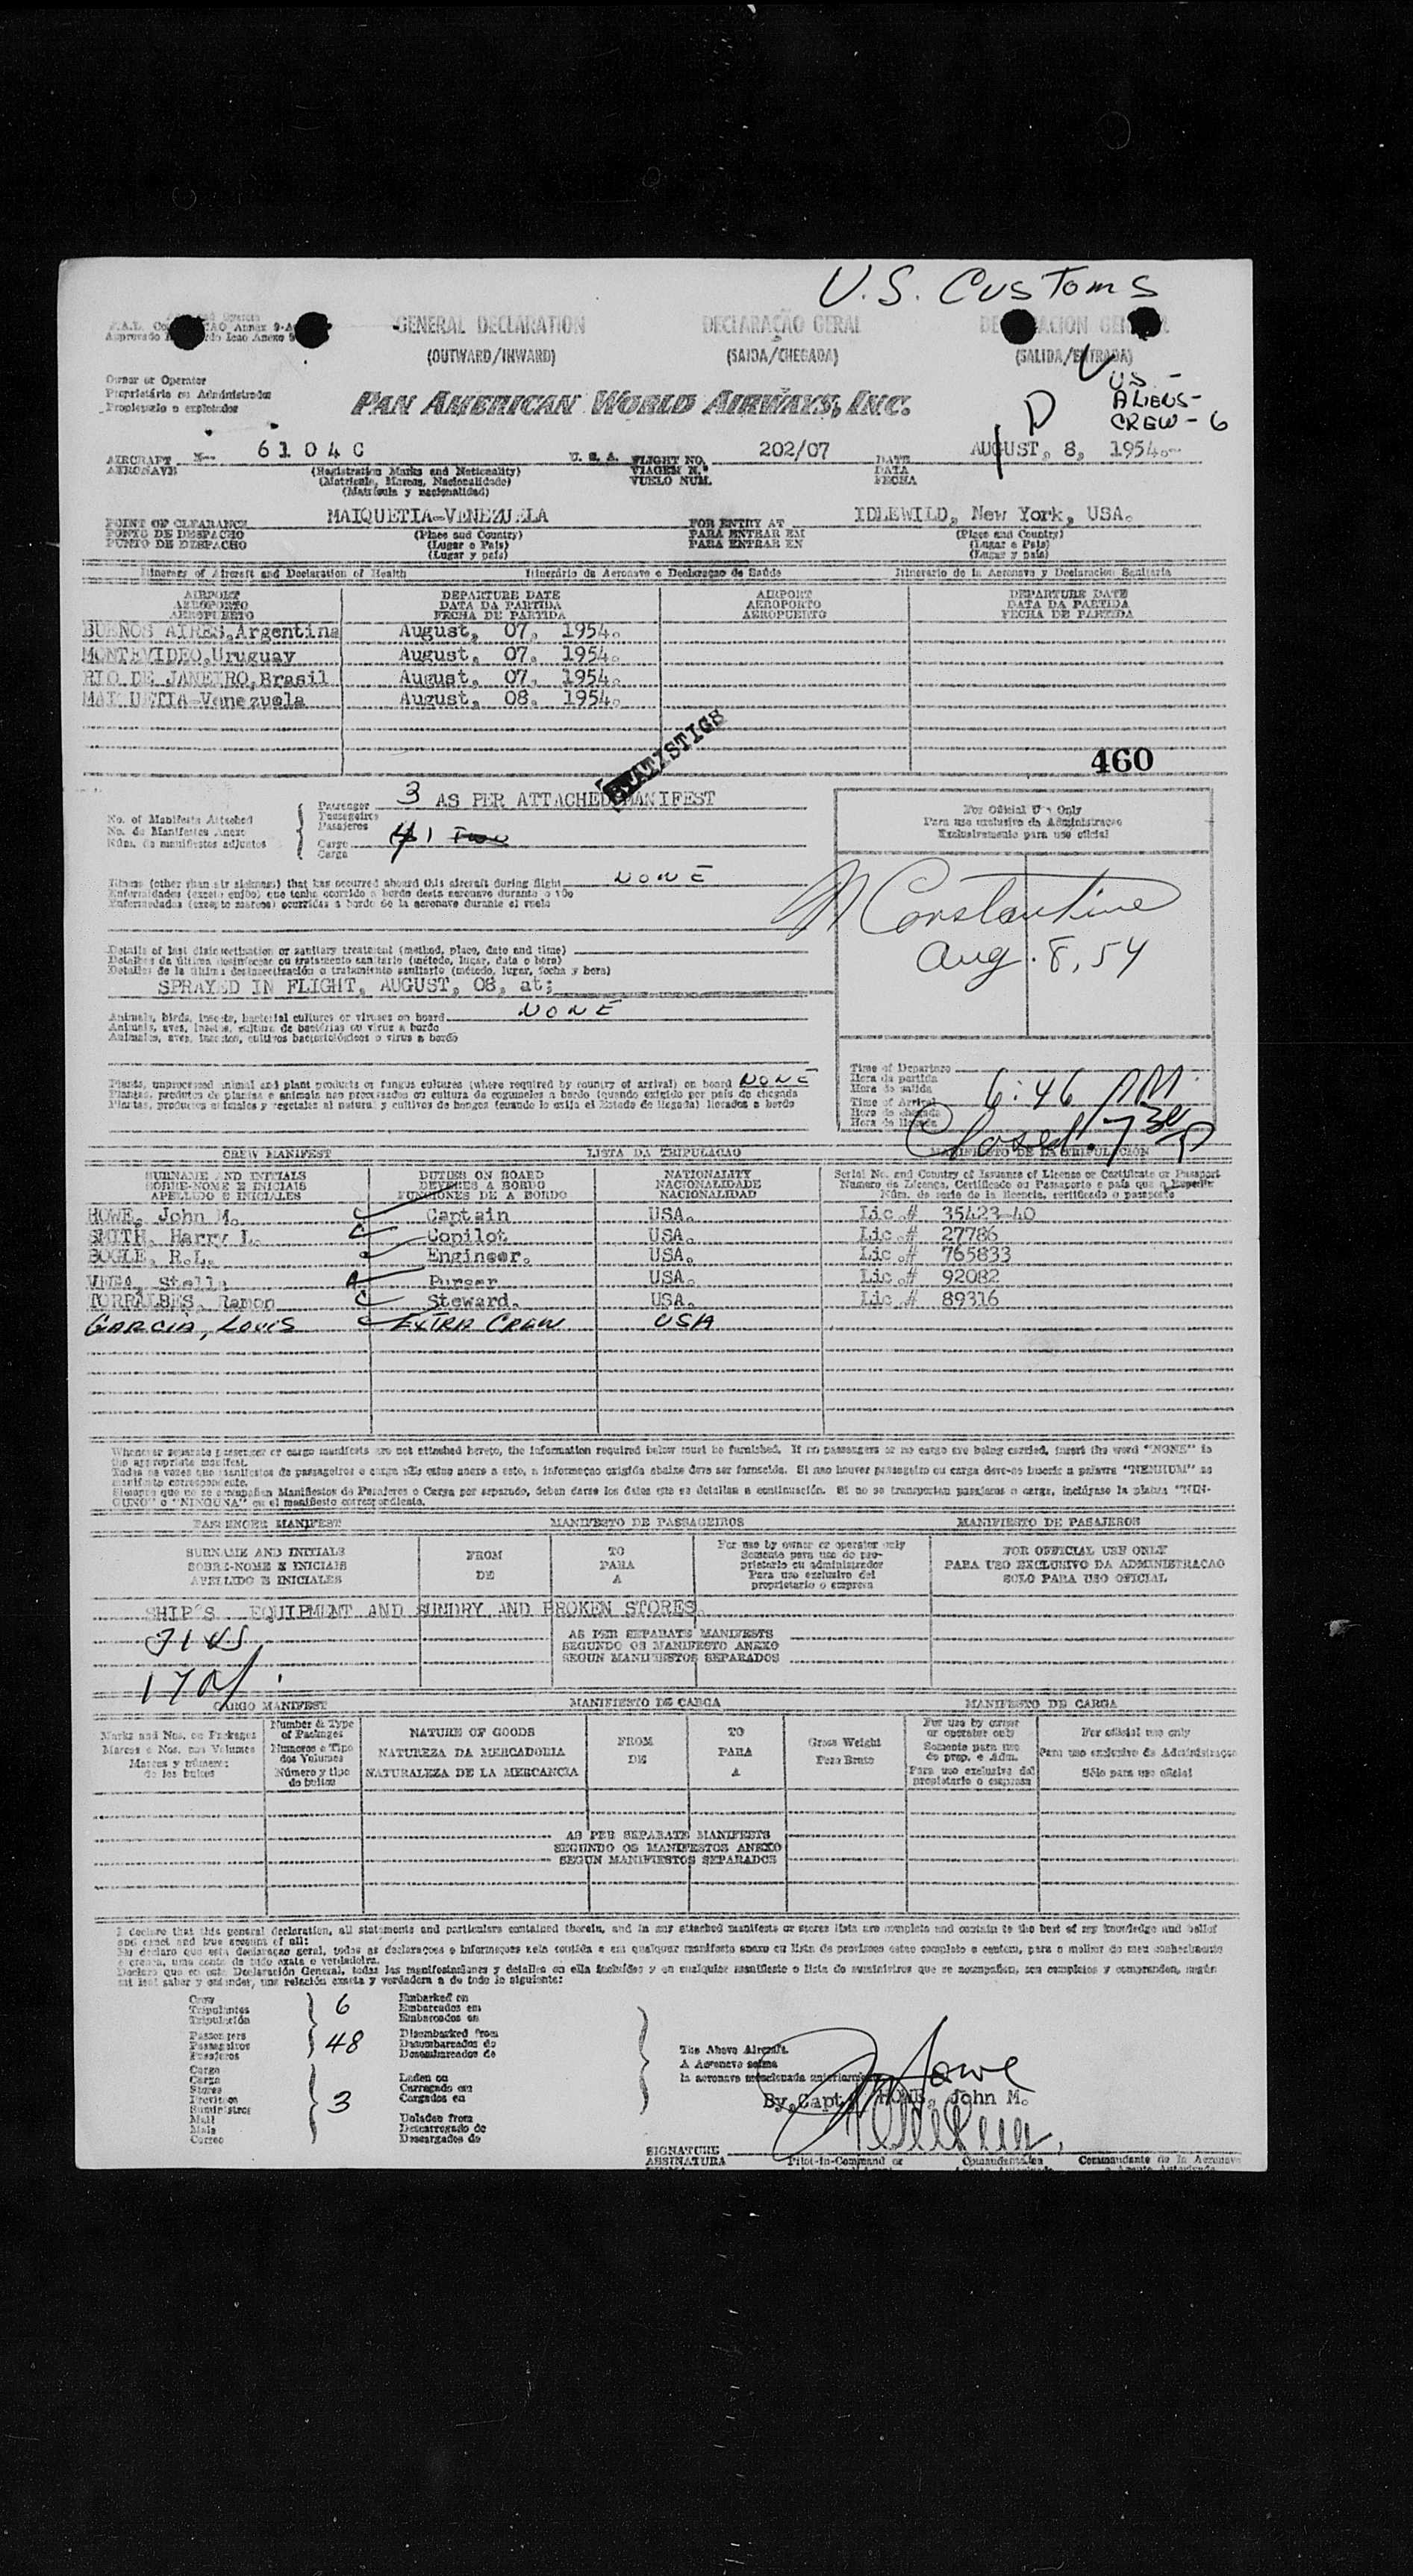 U.S. Customs
GENERAL DECLARATION DECLARAÇÃO GERAL
(OUTWARD/INWARD) (SAIDA/CHEGADA) (SALIDA/ENTRADA)
Owner or Operator
Proprietário ou Administrador
Propietario o explotador
PAN AMERICAN WORLD AIRWAYS, INC.
US -
ALIENS -
CREW - 6
AIRCRAFT 6104C U. S. A. FLIGHT NO. 202/07 DATE AUGUST, 8, 1954.
AERONAVE (Registration Marks and Nationality) VIAGEM N.º DATA
(Matrícula, Marcas, Nacionalidade) VUELO NUM. FECHA
(Matrícula y nacionalidad)
POINT OF CLEARANCE MAIQUETIA-VENEZUELA FOR ENTRY AT IDLEWILD, New York, USA.
PONTO DE DESPACHO (Place and Country) PARA ENTRAR EM (Place and Country)
PUNTO DE DESPACHO (Lugar e País) PARA ENTRAR EN (Lugar e País)
(Lugar y país) (Lugar y país)
Itinerary of Aircraft and Declaration of Health Itinerário da Aeronave e Declaraçao de Saúde Itinerario de la Aeronave y Declaracion Sanitaria
AIRPORT DEPARTURE DATE AIRPORT DEPARTURE DATE
AEROPORTO DATA DA PARTIDA AEROPORTO DATA DA PARTIDA
AEROPUERTO FECHA DE PARTIDA AEROPUERTO FECHA DE PARTIDA
BUENOS AIRES, Argentina August, 07, 1954.
MONTEVIDEO, Uruguay August, 07, 1954.
RIO DE JANEIRO, Brasil August, 07, 1954.
MAIQUETIA-Venezuela August, 08, 1954.
STATISTICS
460
No. of Manifests Attached Passenger 3 AS PER ATTACHED MANIFEST
No. de Manifestos Anexo Passageiros
Núm. de manifiestos adjuntos Pasajeros
Cargo
Carga
For Official Use Only
Para uso exclusivo da Administraçao
Exclusivamente para uso oficial
Illness (other than air sickness) that has occurred aboard this aircraft during flight NONE
Enfermidades (exceto enjôo) que tenha ocorrido a bordo desta aeronave durante o vôo
Enfermedades (excepto mareos) ocurridas a bordo de la aeronave durante el vuelo
M Constantine
Aug. 8, 54
Details of last disinsectization or sanitary treatment (method, place, date and time)
Detalhes da última desinfecçao ou tratamento sanitario (método, lugar, data o hora)
Detalles de la última desinsectización o tratamiento sanitario (método, lugar, fecha y hora)
SPRAYED IN FLIGHT, AUGUST, 08, at;
Animals, birds, insects, bacterial cultures or viruses on board NONE
Animais, aves, insetos, cultura de bactérias ou virus a bordo
Animales, aves, insectos, cultivos bacteriológicos o virus a bordo
Plants, unprocessed animal and plant products or fungus cultures (where required by country of arrival) on board NONE
Plantas, produtos de plantas e animais nao processados ou cultura de cogumelos a bordo (quando exigido por país de chegada
Plantas, productos animales y vegetales al natural y cultivos de hongos (cuando lo exija el Estado de llegada) llevados a bordo
Time of Departure
Hora da partida
Hora de salida
Time of Arrival 6:46 PM
Hora de chegada
Hora de llegada Closed
CREW MANIFEST LISTA DA TRIPULACAO MANIFIESTO DE LA TRIPULACION
SURNAME AND INITIALS DUTIES ON BOARD NATIONALITY Serial No. and Country of Issuance of License or Certificate or Passport
SOBRE-NOME E INICIAIS DEVERES A BORDO NACIONALIDADE Numero da Licença, Certificado ou Passaporte e país que o Expediu
APELLIDO E INICIALES FUNCIONES DE A BORDO NACIONALIDAD Núm. de serie de la licencia, certificado o pasaporte
HOWE, John M. Captain USA. Lic.# 35423-40
SMITH, Harry L. Copilot USA. Lic.# 27786
BOGLE, R.L. Engineer. USA. Lic.# 765833
VEGA, Stella Purser USA. Lic.# 92082
TORRALBES, Ramon Steward. USA. Lic.# 89316
GARCIA, LOUIS EXTRA CREW USA
Whenever separate passenger or cargo manifests are not attached hereto, the information required below must be furnished. If no passengers or no cargo are being carried, insert the word "NONE" in
the appropriate manifest.
Todas as vezes que manifestos de passageiros e carga não esteo anexo a este, a informaçao exigida abaixo deve ser fornecida. Si nao houver passageiro ou carga deve-se inscrir a palavra "NENHUM" no
manifesto correspondente.
Siempre que no se acompañen Manifiestos de Pasajeros o Carga por separado, deben darse los datos que se detallan a continuación. Si no se transportan pasajeros o carga, inclúyase la plabra "NIN-
GUNO" o "NINGUNA" en el manifiesto correspondiente.
PASSENGER MANIFEST MANIFESTO DE PASSAGEIROS MANIFIESTO DE PASAJEROS
SURNAME AND INITIALS FROM TO For use by owner or operator only FOR OFFICIAL USE ONLY
SOBRE-NOME E INICIAIS DE PARA Somente para uso de pro- PARA USO EXCLUSIVO DA ADMINISTRACAO
APELLIDO E INICIALES A prietario ou administrador SOLO PARA USO OFICIAL
Para uso exclusivo del
proprietario o empresa
SHIP'S EQUIPMENT AND SUNDRY AND BROKEN STORES.
AS PER SEPARATE MANIFESTS
SEGUNDO OS MANIFESTO ANEXO
SEGUN MANIFIESTOS SEPARADOS
CARGO MANIFEST MANIFIESTO DE CARGA MANIFESTO DE CARGA
Marks and Nos. on Packages Number & Type of Packages NATURE OF GOODS FROM TO Gross Weight For use by owner or operator only For official use only
Marcas e Nos. nos Volumes Numeros e Tipo dos Volumes NATUREZA DA MERCADORIA DE PARA Peso Bruto Somente para uso do prop. e Adm. Para uso exclusivo da Administraçao
Marcas y números de los bultos Número y tipo de bultos NATURALEZA DE LA MERCANCIA A Para uso exclusivo del propietario o empresa Sólo para uso oficial
AS PER SEPARATE MANIFESTS
SEGUNDO OS MANIFESTOS ANEXO
SEGUN MANIFIESTOS SEPARADOS
I declare that this general declaration, all statements and particulars contained therein, and in any attached manifests or stores lists are complete and contain to the best of my knowledge and belief
and exact and true account of all:
Crew 6 Embarked on
Tripulantes Embarcados em
Tripulación Embarcados en
Passengers 48 Disembarked from
Passageiros Desembarcados do
Pasajeros Desembarcados de
The Above Aircraft
A Aeronave acima
la aeronave mencionada anteriormente
Cargo Laden on
Carga Carregado em
Stores 3 Cargados en
Suministros
Mail Unladen from
Mala Descarregado de
Correo Descargados de
By, Capt. HOWE, John M.
SIGNATURE
ASSINATURA Pilot-in-Command or Comandante da Comandante de la Aeronave